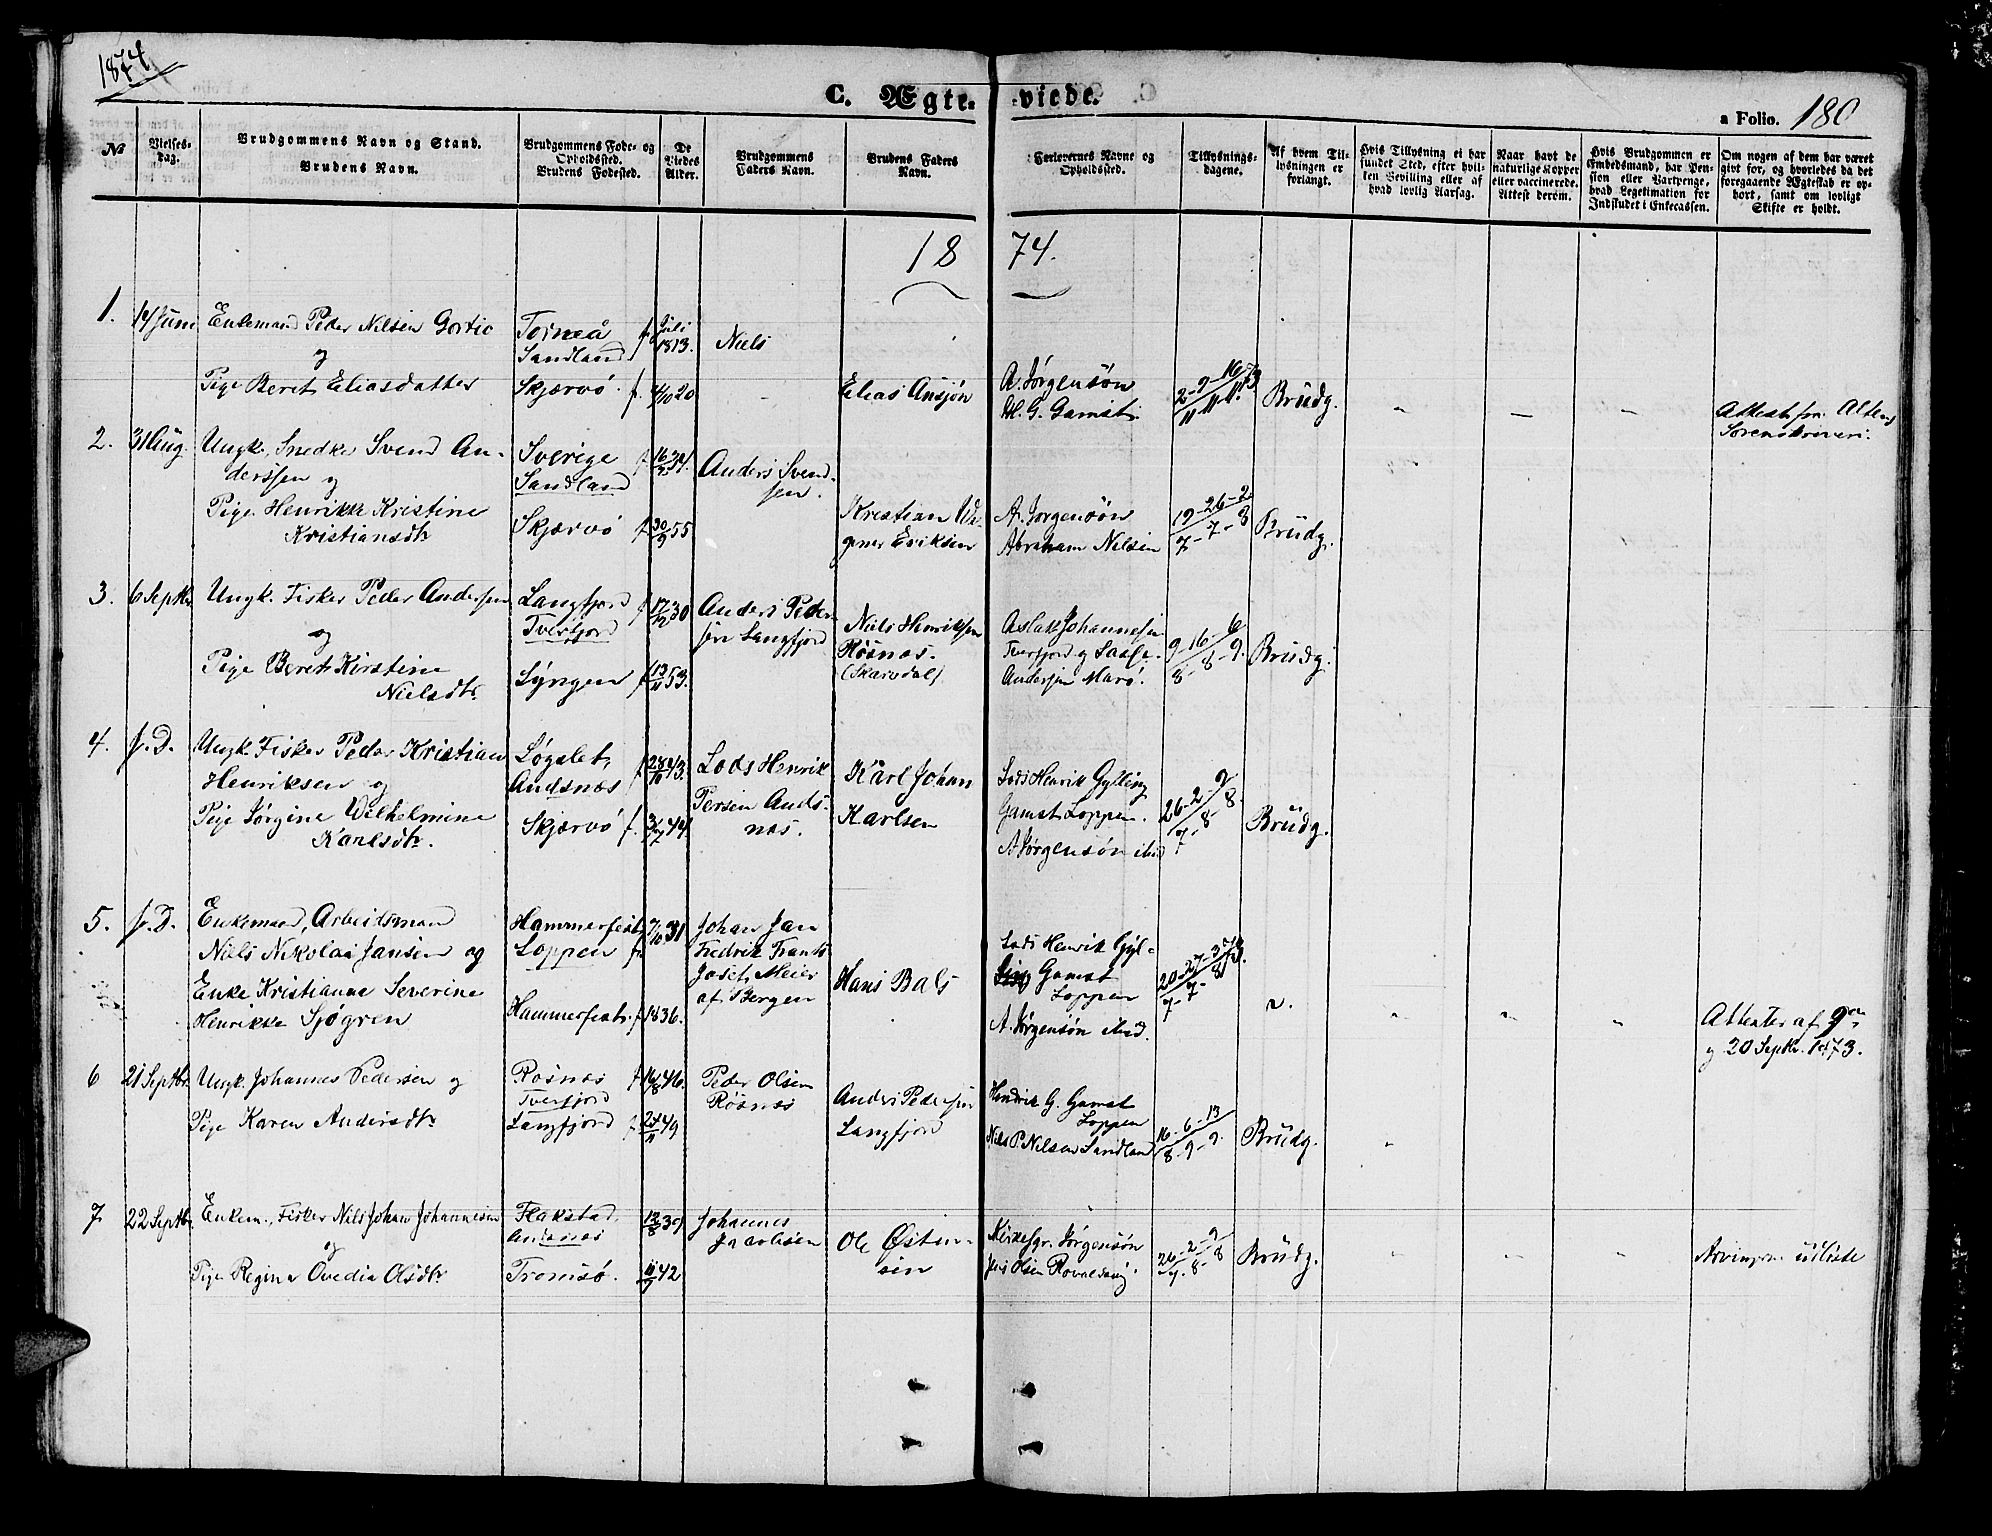 1874
C. Ægte-viede.
a Folio. 180
№
Vielses-
dag.
Brudgommens Navn og Stand.
Brudens Navn.
Brudgommens Føde- og
Opholdssted.
Brudens Fødested.
De
Viedes
Alder.
Brudgommens
Faders Navn.
Brudens Faders
Navn.
Forlovernes Navne og
Opholdssted.
Tillysnings-
dagene.
Af hvem Til-
lysningen er
forlangt.
Hvis Tillysning ei har
fundet Sted, efter hvil-
ken Bevilling eller af
hvad lovlig Aarsag.
Naar havt de
naturlige Kopper
eller vaccinerede.
Attest derom.
Hvis Brudgommen er
Embedsmand, har Pen-
sion eller Vartpenge,
hvad Legitimation for
Indskudet i Enkecassen.
Om nogen af dem har været
givt for, og hvorledes da det
foregaaende Ægteskab er op-
hørt, samt om lovligt
Skifte er holdt.
1874.
1. 14 Juni
Enkemand Peder Nilsen
og
Pige Beret Eliasdatter
Torneå
Sandland
Skjærvö. f.
Juli
1813.
4/10 20
Niels
Elias Ansjøn
A. Jörgensön
H. G. Gamst
Brudg.
Attest fra Altens
Sorenskriveri.
2. 31 Aug.
Ungk. Snedker Svend An-
derssen og
Pige Henrikke Kristine
Kristiansdtr
Sverige
Sandland
Skjærvö
30/9 55
Anders Svend-
sen.
Kristian Wa-
gner Eriksen
A. Jörgensön
Abraham Nilsen
19-26-2
7-7-8
Brudg.
3. 6 Septbr
Ungk. Fisker Peder Andersen
og
Pige Beret Kirstine
Nielsdtr.
Langfjord
Tverfjord
Lyngen
17/12 30
13/11 53.
Anders Peder
sen Langfjord
Niels Henriksen
Rösnæs.
(Skarvdal)
Aslak Johannesen
Tverfjord og
Andersen Marö.
9-16-6
8-8-9.
Brudg.
4. s. D.
Ungk. Fisker Peder Kristian
Henriksen og
Pige Jörgine Wilhelmine
Karlsdtr.
Løgslet,
Andsnæs
Skjærvö f.
28/10 43.
3/7 44.
Lods Henrik
Persen Ands-
næs.
Karl Johan
Karlsen
Lods Henrik Gylling
Gamst Loppen.
A. Jörgensön ibid
26-2-9
7-8-8.
Brudg.
5. s. D.
Enkemand, Arbeidsmand
Niels Nikolai Jansen og
Enke Kristianna Severine
Henrikke Sjögren
Hammerfest
Loppen
Hammerfest.
7/10 31
1836.
Johan Jan
Fredrik Frants
Josef Meier
af Bergen
Hans Bals
Lods Henrik Gyl-
ling Gamst
Loppen
A. Jörgensön ibid.
20-27-3
7-7-8
Attester af 9de
og 20 Septbr. 1873.
6 21 Septbr.
Ungk. Johannes Pedersen og
Pige Karen Andersdtr.
Rosnæs
Tverfjord
Langfjord
16/8 46.
Peder Olsen
Rösnæs
Anders Pedersen
Langfjord
Hendrik G. Gamst
Loppen
Nils P. Nilsen Sandland
16-6-13
8-9-9.
Brudg.
7 22 Septbr.
Enkem., Fisker Nils Johan Johannesen
og
Pige Regina Ovedia Olsdtr
Flakstad,
Andsnæs
Tromsö.
Johannes
Jacobsen
Ole Østen-
sen
Kirkesgr. Jörgensön
Jens Olsen
26-2-9
7-8-8
Brudg.
Arvingerne udløste